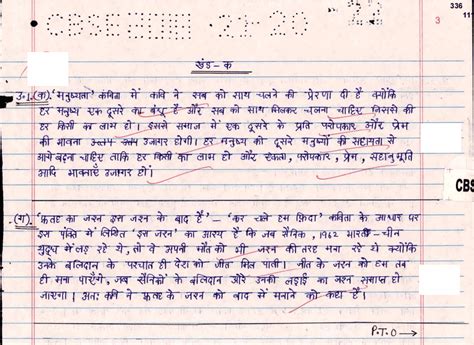 CBSE 21-20
336
3
111
खंड-क
उ.1.(क) 'मनुष्यता' कविता में कवि ने सब को साथ चलने की प्रेरणा दी है क्योंकि
हर मनुष्य एक दूसरे का बंधु है और सब को साथ मिलकर चलना चाहिए जिससे की
हर किसी का लाभ हो। इससे समाज में एक दूसरे के प्रति परोपकार और प्रेम
की भावना उजागर होगी। हर मनुष्य को दूसरे मनुष्यों की सहायता से
आगे बढ़ना चाहिए ताकि हर किसी का लाभ हो और एकता, परोपकार, प्रेम, सहानुभूति
आदि भावनाएँ उजागर हों।
CBS
(ग) 'फ़तह का जश्न इस जश्न के बाद है' - 'कर चले हम फ़िदा' कविता के आधार पर
इस पंक्ति में लिखित 'इस जश्न' का आश्य है कि जब सैनिक, 1962 भारत-चीन
युद्ध में लड़ रहे थे, तो वे अपनी मौत को भी जश्न की तरह मना रहे थे क्योंकि
उनके बलिदान के पश्चात ही देश को जीत मिल पाती। जीत के जश्न को हम तब
ही मना पाएँगे, जब सैनिकों के बलिदान और उनकी लड़ाई का जश्न समाप्त हो
जाएगा। अतः कवि ने फ़तह के जश्न को बाद में मनाने को कहा है।
P.T.O →